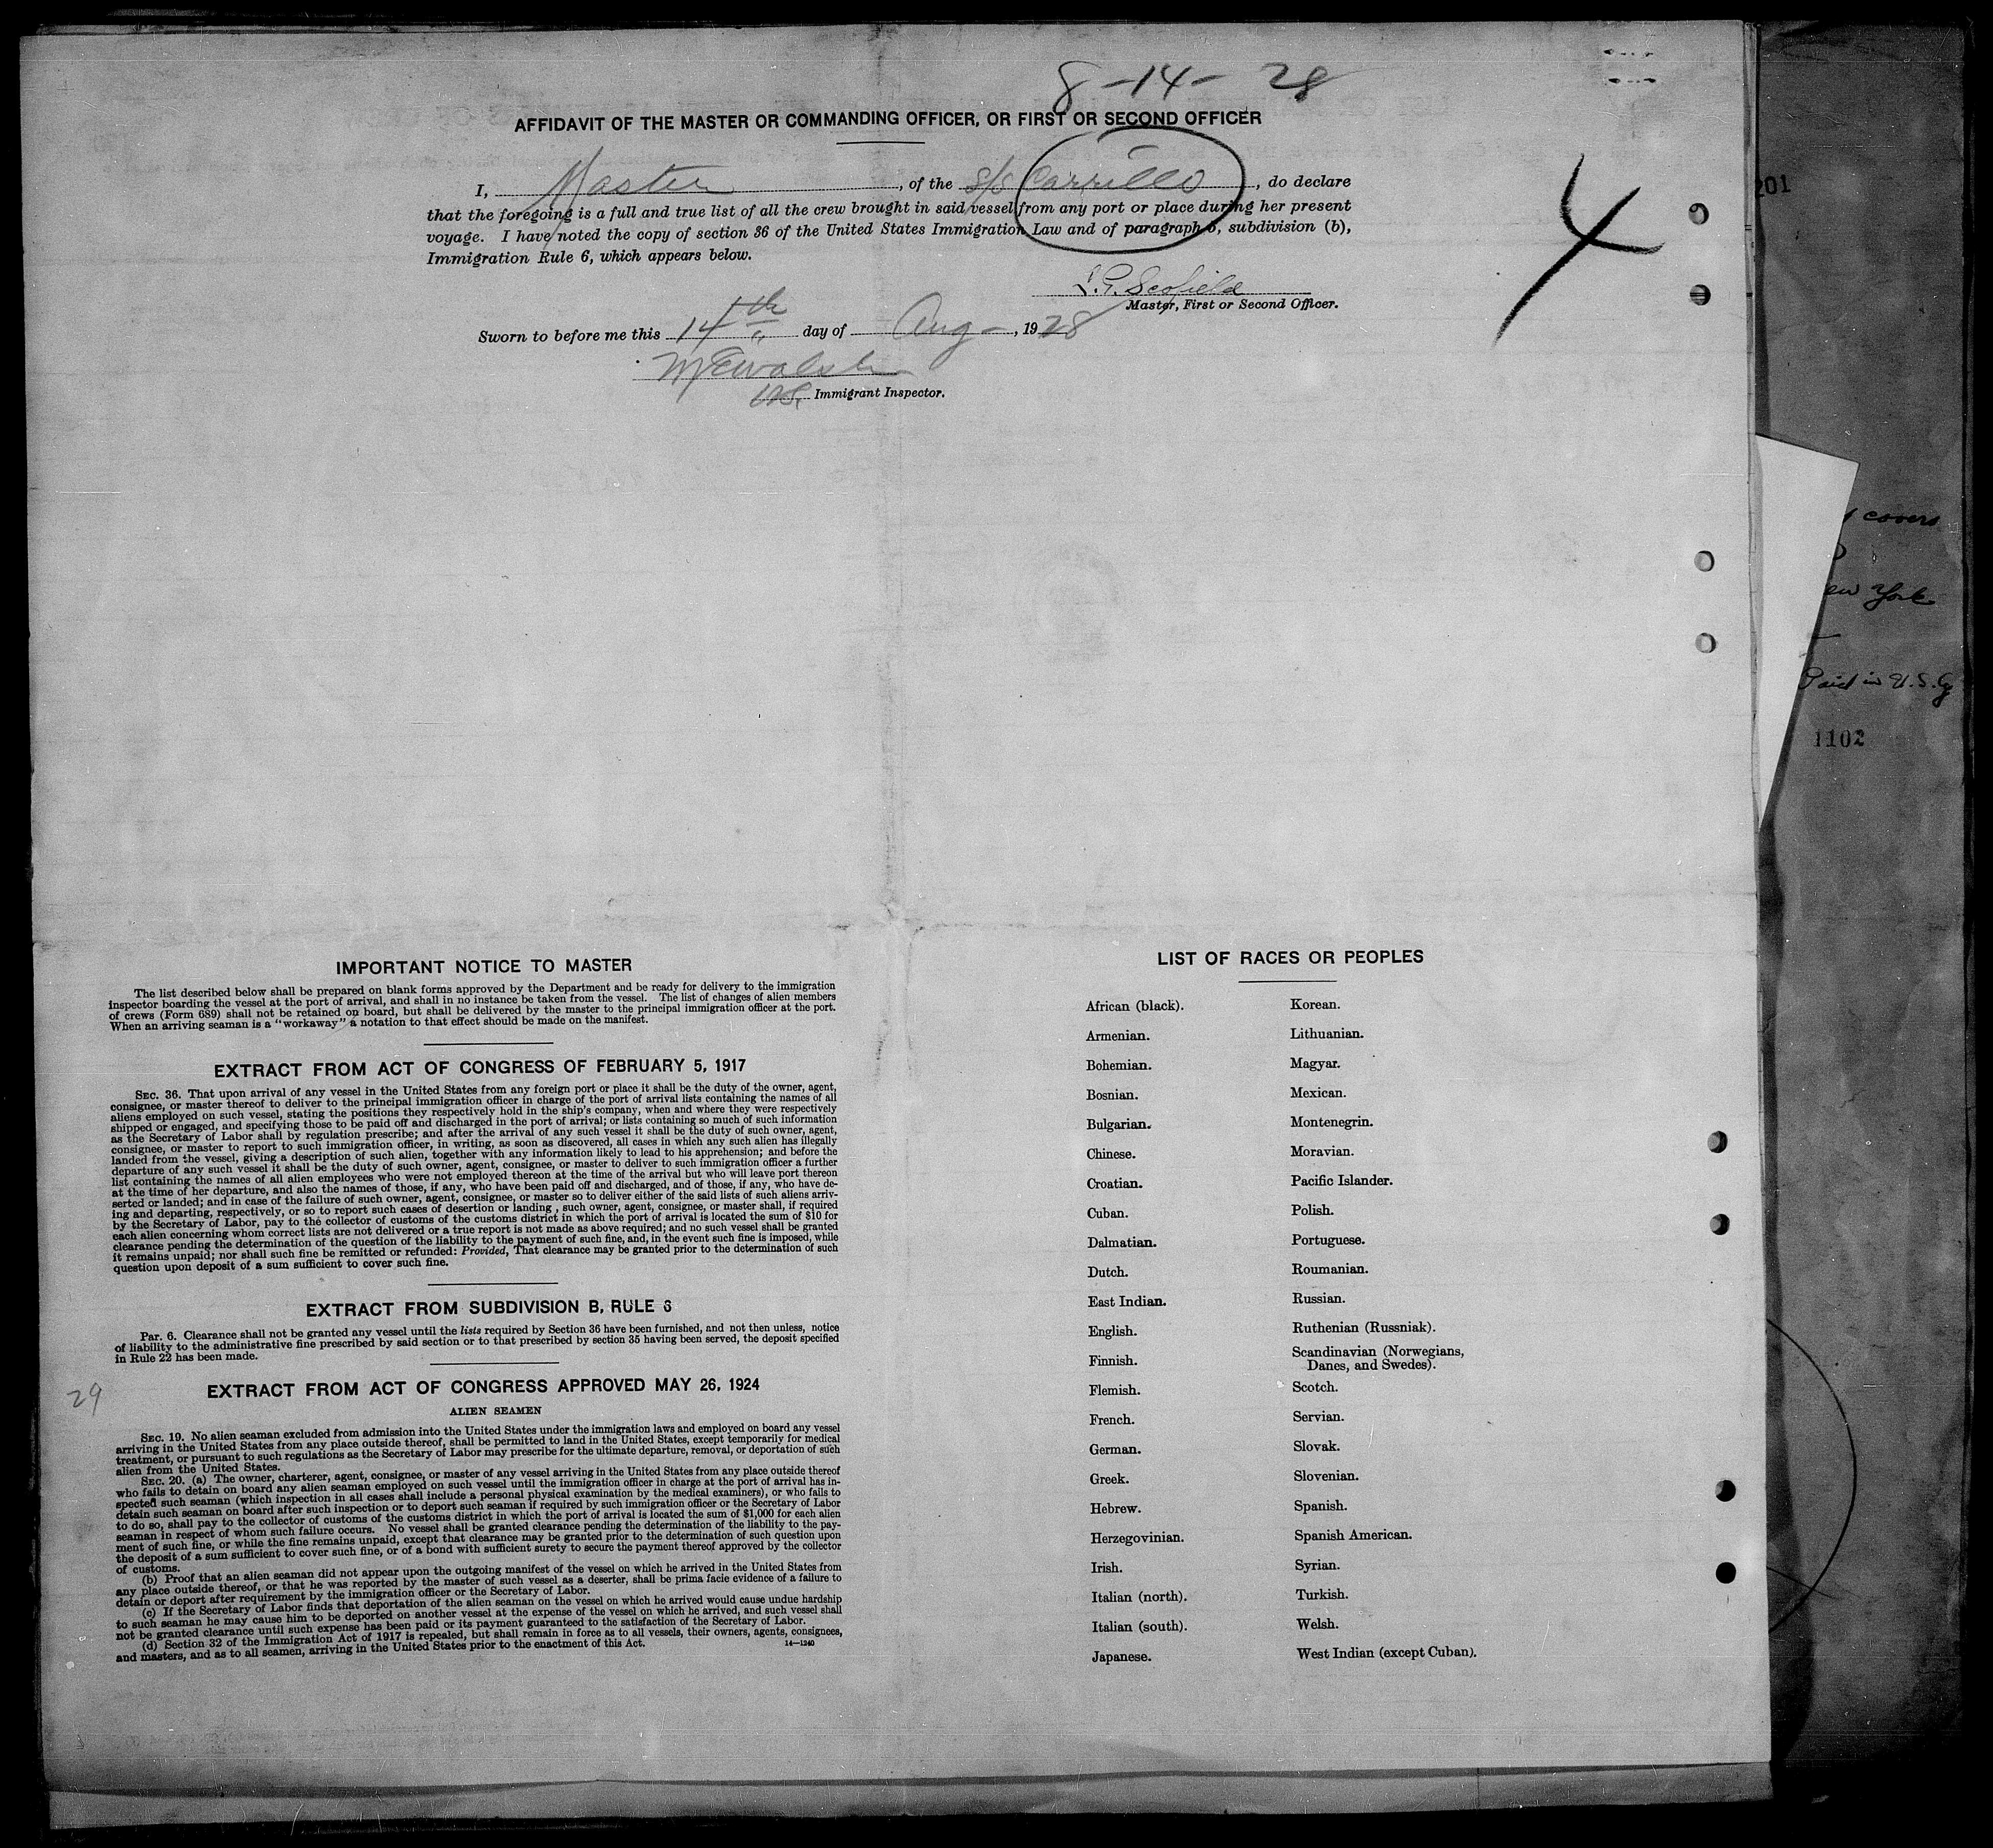 8-14-28
AFFIDAVIT OF THE MASTER OR COMMANDING OFFICER, OR FIRST OR SECOND OFFICER
I, Master, of the S/S Carrillo, do declare
that the foregoing is a full and true list of all the crew brought in said vessel from any port or place during her present
voyage. I have noted the copy of section 36 of the United States Immigration Law and of paragraph 6, subdivision (b),
Immigration Rule 6, which appears below.
L.G. Scofield
Master, First or Second Officer.
Sworn to before me this 14th day of Aug-, 1928
Immigrant Inspector.
4
201
covers
ew York
Paid in U.S. Cy
1102
IMPORTANT NOTICE TO MASTER
The list described below shall be prepared on blank forms approved by the Department and be ready for delivery to the immigration
inspector boarding the vessel at the port of arrival, and shall in no instance be taken from the vessel. The list of changes of alien members
of crews (Form 689) shall not be retained on board, but shall be delivered by the master to the principal immigration officer at the port.
When an arriving seaman is a "workaway" a notation to that effect should be made on the manifest.
EXTRACT FROM ACT OF CONGRESS OF FEBRUARY 5, 1917
SEC. 36. That upon arrival of any vessel in the United States from any foreign port or place it shall be the duty of the owner, agent,
consignee, or master thereof to deliver to the principal immigration officer in charge of the port of arrival lists containing the names of all
aliens employed on such vessel, stating the positions they respectively hold in the ship's company, when and where they were respectively
shipped or engaged, and specifying those to be paid off and discharged in the port of arrival; or lists containing so much of such information
as the Secretary of Labor shall by regulation prescribe; and after the arrival of any such vessel it shall be the duty of such owner, agent,
consignee, or master to report to such immigration officer, in writing, as soon as discovered, all cases in which any such alien has illegally
landed from the vessel, giving a description of such alien, together with any information likely to lead to his apprehension; and before the
departure of any such vessel it shall be the duty of such owner, agent, consignee, or master to deliver to such immigration officer a further
list containing the names of all alien employees who were not employed thereon at the time of the arrival but who will leave port thereon
at the time of her departure, and also the names of those, if any, who have been paid off and discharged, and of those, if any, who have de-
serted or landed; and in case of the failure of such owner, agent, consignee, or master so to deliver either of the said lists of such aliens arriv-
ing and departing, respectively, or so to report such cases of desertion or landing , such owner, agent, consignee, or master shall, if required
by the Secretary of Labor, pay to the collector of customs of the customs district in which the port of arrival is located the sum of $10 for
each alien concerning whom correct lists are not delivered or a true report is not made as above required; and no such vessel shall be granted
clearance pending the determination of the question of the liability to the payment of such fine, and, in the event such fine is imposed, while
it remains unpaid; nor shall such fine be remitted or refunded: Provided, That clearance may be granted prior to the determination of such
question upon deposit of a sum sufficient to cover such fine.
EXTRACT FROM SUBDIVISION B, RULE 6
Par. 6. Clearance shall not be granted any vessel until the lists required by Section 36 have been furnished, and not then unless, notice
of liability to the administrative fine prescribed by said section or to that prescribed by section 35 having been served, the deposit specified
in Rule 22 has been made.
29
EXTRACT FROM ACT OF CONGRESS APPROVED MAY 26, 1924
ALIEN SEAMEN
SEC. 19. No alien seaman excluded from admission into the United States under the immigration laws and employed on board any vessel
arriving in the United States from any place outside thereof, shall be permitted to land in the United States, except temporarily for medical
treatment, or pursuant to such regulations as the Secretary of Labor may prescribe for the ultimate departure, removal, or deportation of such
alien from the United States.
SEC. 20. (a) The owner, charterer, agent, consignee, or master of any vessel arriving in the United States from any place outside thereof
who fails to detain on board any alien seaman employed on such vessel until the immigration officer in charge at the port of arrival has in-
spected such seaman (which inspection in all cases shall include a personal physical examination by the medical examiners), or who fails to
detain such seaman on board after such inspection or to deport such seaman if required by such immigration officer or the Secretary of Labor
to do so, shall pay to the collector of customs of the customs district in which the port of arrival is located the sum of $1,000 for each alien
seaman in respect of whom such failure occurs. No vessel shall be granted clearance pending the determination of the liability to the pay-
ment of such fine, or while the fine remains unpaid, except that clearance may be granted prior to the determination of such question upon
the deposit of a sum sufficient to cover such fine, or of a bond with sufficient surety to secure the payment thereof approved by the collector
of customs.
(b) Proof that an alien seaman did not appear upon the outgoing manifest of the vessel on which he arrived in the United States from
any place outside thereof, or that he was reported by the master of such vessel as a deserter, shall be prima facie evidence of a failure to
detain or deport after requirement by the immigration officer or the Secretary of Labor.
(c) If the Secretary of Labor finds that deportation of the alien seaman on the vessel on which he arrived would cause undue hardship
to such seaman he may cause him to be deported on another vessel at the expense of the vessel on which he arrived, and such vessel shall
not be granted clearance until such expense has been paid or its payment guaranteed to the satisfaction of the Secretary of Labor.
(d) Section 32 of the Immigration Act of 1917 is repealed, but shall remain in force as to all vessels, their owners, agents, consignees,
and masters, and as to all seamen, arriving in the United States prior to the enactment of this Act.
14—1240
LIST OF RACES OR PEOPLES
African (black).
Armenian.
Bohemian.
Bosnian.
Bulgarian.
Chinese.
Croatian.
Cuban.
Dalmatian.
Dutch.
East Indian.
English.
Finnish.
Flemish.
French.
German.
Greek.
Hebrew.
Herzegovinian.
Irish.
Italian (north).
Italian (south).
Japanese.
Korean.
Lithuanian.
Magyar.
Mexican.
Montenegrin.
Moravian.
Pacific Islander.
Polish.
Portuguese.
Roumanian.
Russian.
Ruthenian (Russniak).
Scandinavian (Norwegians,
Danes, and Swedes).
Scotch.
Servian.
Slovak.
Slovenian.
Spanish.
Spanish American.
Syrian.
Turkish.
Welsh.
West Indian (except Cuban).